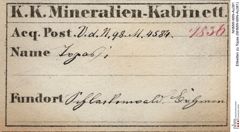 K. K. Mineralien-Kabinett.
Acq. Post. D. d. N. 98. M. 4584. 1836
Name Topas.
Fundort Schlackenwald. Böhmen